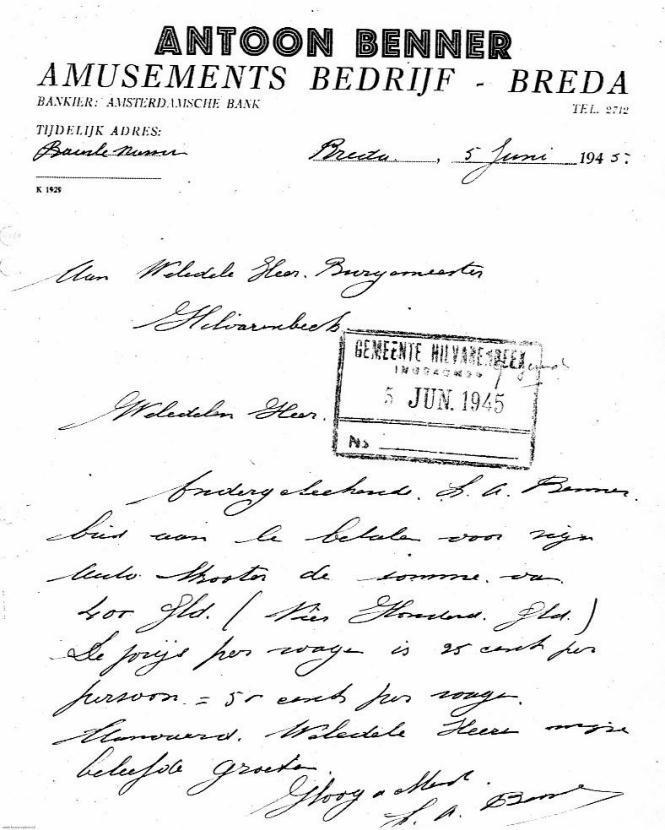 ANTOON BENNER
AMUSEMENTS BEDRIJF - BREDA
BANKIER: AMSTERDAMSCHE BANK
TEL. 2712
TIJDELIJK ADRES:
Baarle Nassau
Breda, 5 Juni 1945.
K 1929
Aan Weledele Heer. Burgemeester
Hilvarenbeek
GEMEENTE HILVARENBEEK
INGEKOMEN
5 JUN. 1945
No
Weledelen Heer.
Ondergeteekende. L. A. Benner.
bied aan te betalen voor zijn
Auto Skooter de somme. van
400 Gld. (Vier Honderd. Gld.)
De prijs per wage is 25 cent per
persoon. = 50 cent per wage.
Aanvaard. Weledele Heer mijne
beleefde groeten.
Hoog a
L. A. Benner